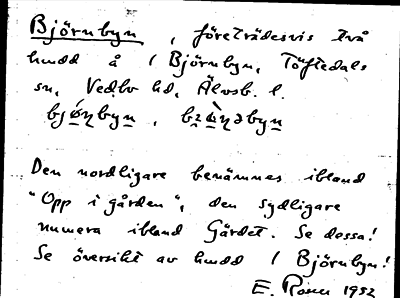 Björnbyn, företrädesvis två
hmdd å / Björnbyn, Töftedals
sn, Vedbo hd, Älvsb. l.
Den nordligare benämnes ibland
"Opp i gården", den sydligare
numera ibland Gärdet. Se dessa!
Se översikt av hmdd / Björnbyn!
E. 1952